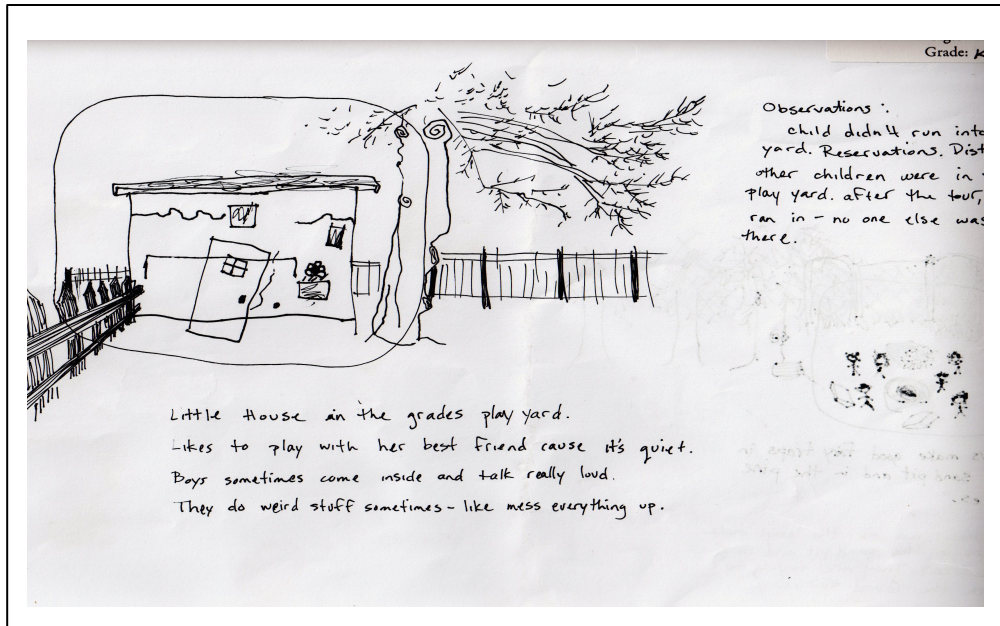 Grade: K
Observations:
child didn't run into
yard. Reservations.
other children were in
play yard. after the tour,
ran in - no one else was
there.
Little House in the grades play yard.
Likes to play with her best friend cause it's quiet.
Boys sometimes come inside and talk really loud.
They do weird stuff sometimes - like mess everything up.